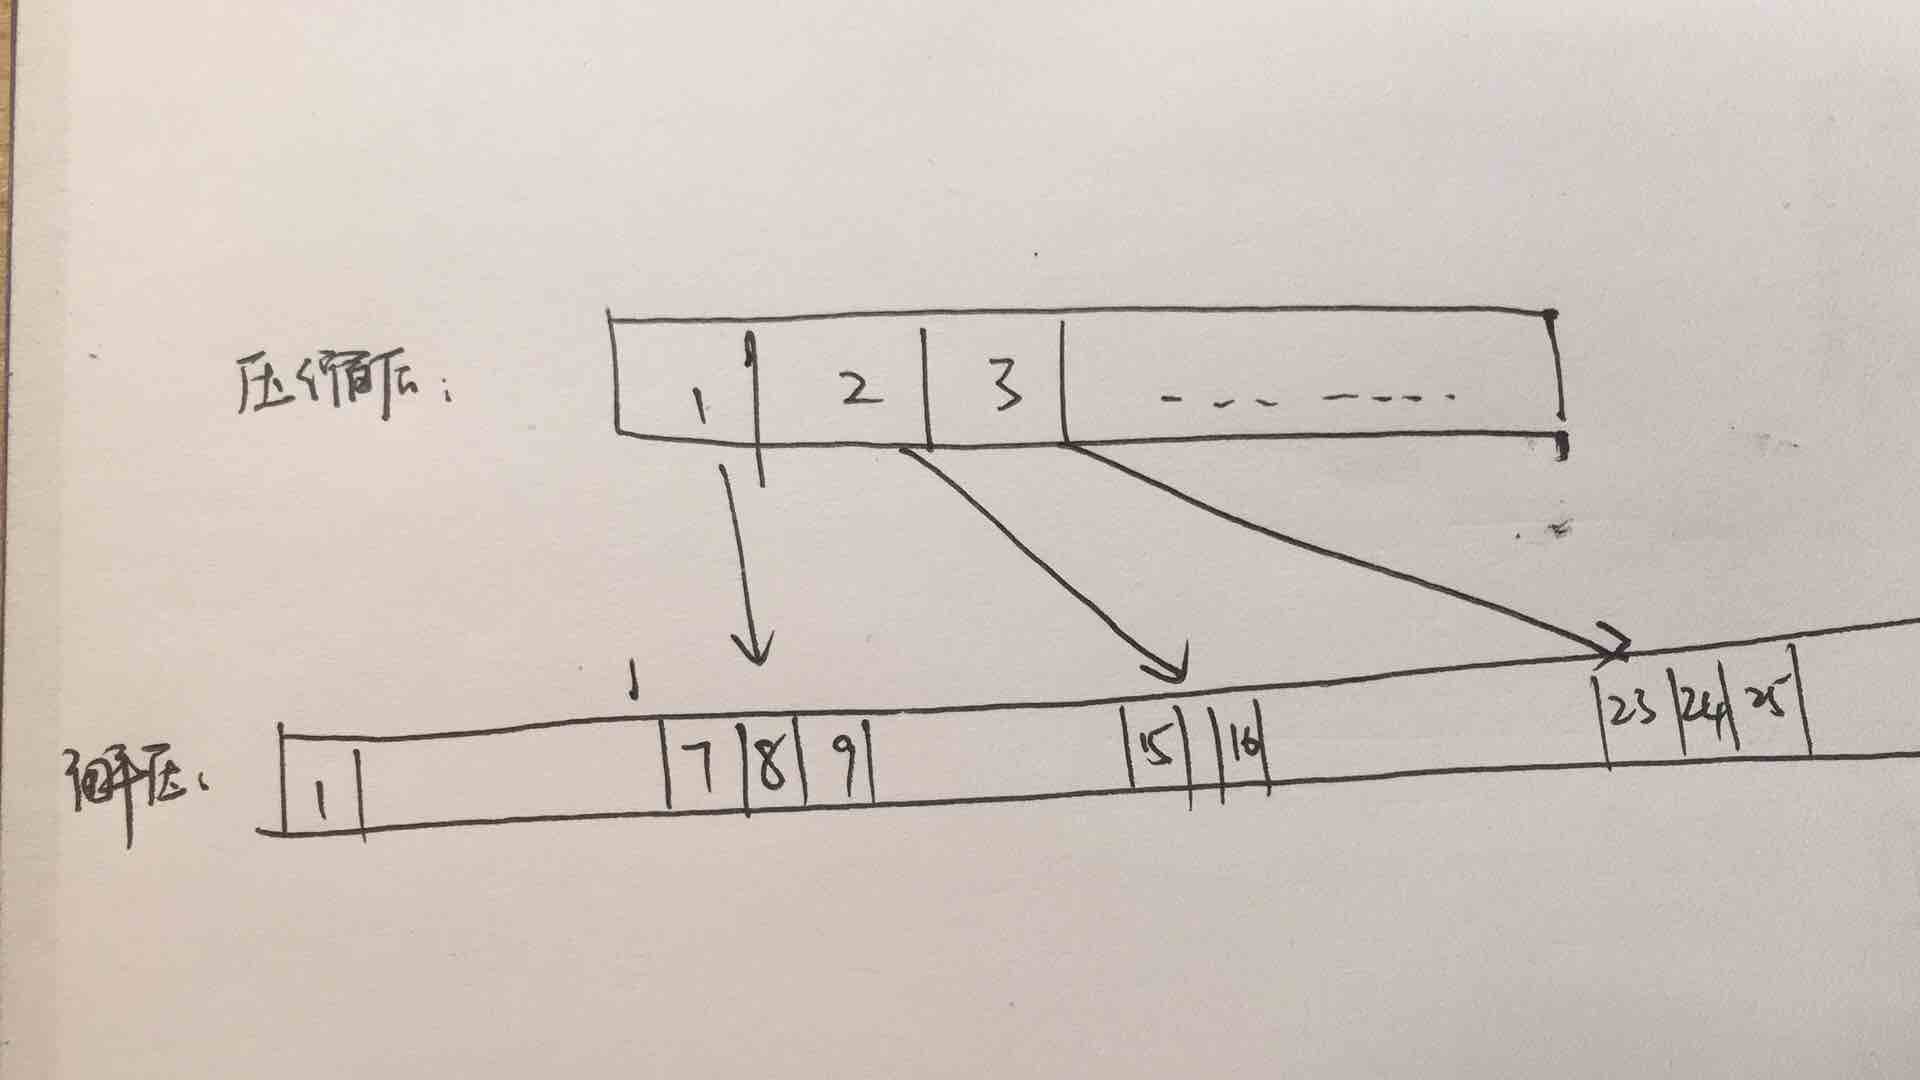 压缩后:
1 2 3 --- ----
解压:
1 7 8 9 15 16 23 24 25